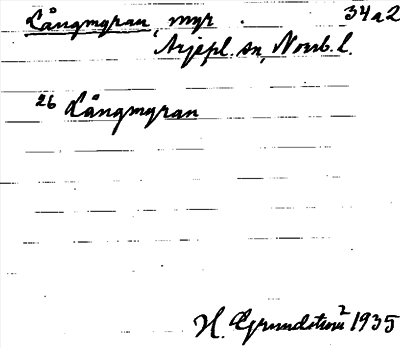 Långmyran, myr 34a2
Arjepl. sn, Norrb. l.
26 Långmyran
H. Grundström² 1935